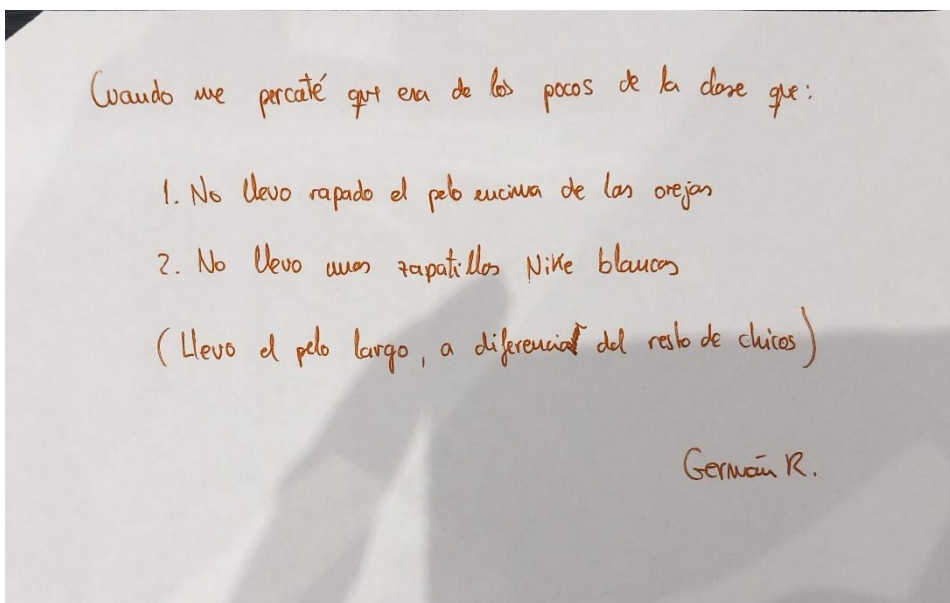 Cuando me percaté que era de los pocos de la clase que:
1. No llevo rapado el pelo encima de las orejas
2. No llevo unas zapatillas Nike blancas
(Llevo el pelo largo, a diferencia del resto de chicos)
Germán R.